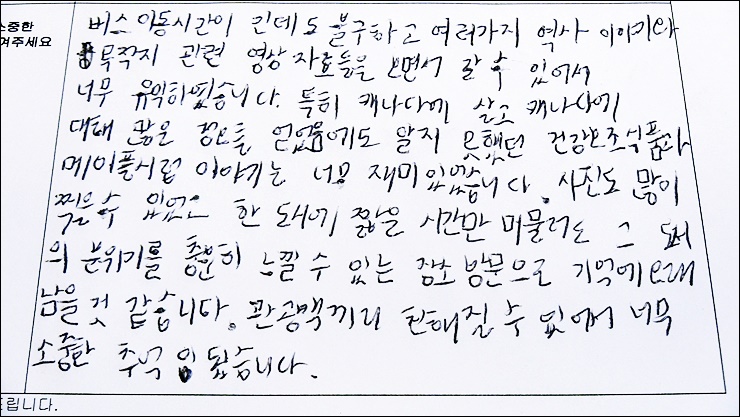 소중한
겨주세요
버스 이동시간이 긴데도 불구하고 여러가지 역사 이야기와
목적지 관련 영상자료들을 보면서 갈 수 있어서
너무 유익하였습니다. 특히 캐나다에 살고 캐나다에
대해 많은 정보를 얻었음에도 알지 못했던 건강보조식품과
메이플시럽 이야기는 너무 재미있었습니다. 사진도 많이
찍을 수 있었고 한 도시에 짧은 시간만 머물러도 그 도시
의 분위기를 충분히 느낄 수 있는 장소 방문으로 기억에 오래
남을 것 같습니다. 관광객끼리 친해질 수 있어서 너무
소중한 추억이 됐습니다.
드립니다.